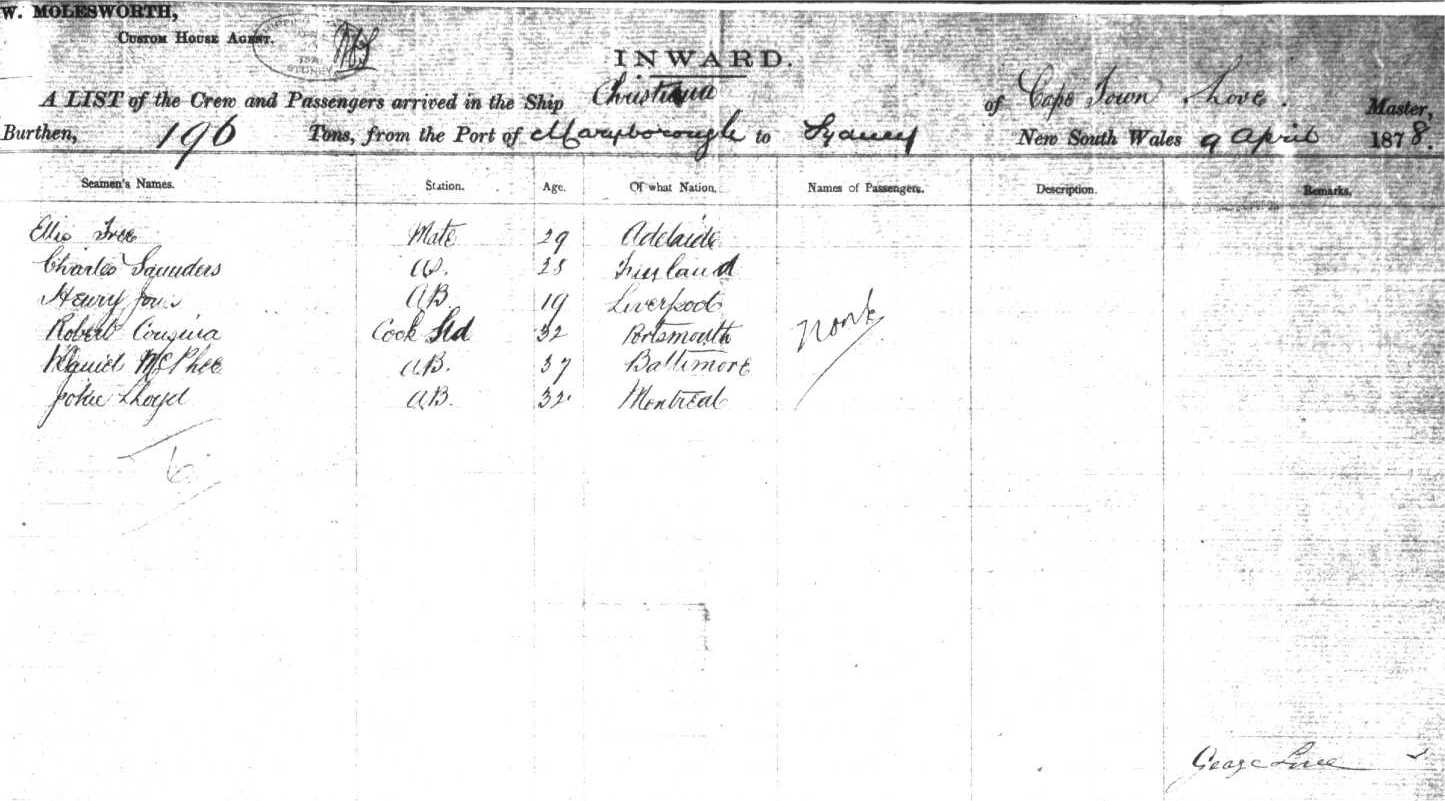 W. MOLESWORTH,
CUSTOM HOUSE AGENT.
SYDNEY
INWARD.
A LIST of the Crew and Passengers arrived in the Ship Christiana of Cape Town Love. Master,
Burthen, 196 Tons, from the Port of Maryborough to Sydney New South Wales 9 April 1878.
Seamen's Names. Station. Age. Of what Nation. Names of Passengers. Description. Remarks.
Free Mate 29 Adelaide
Charles Saunders
Henry A.B. 19 Liverpool
Robert Cook Std 32 Portsmouth
Daniel McPhee A.B. 37 Baltimore
None
Lloyd A.B. 32 Montreal
6
George Love